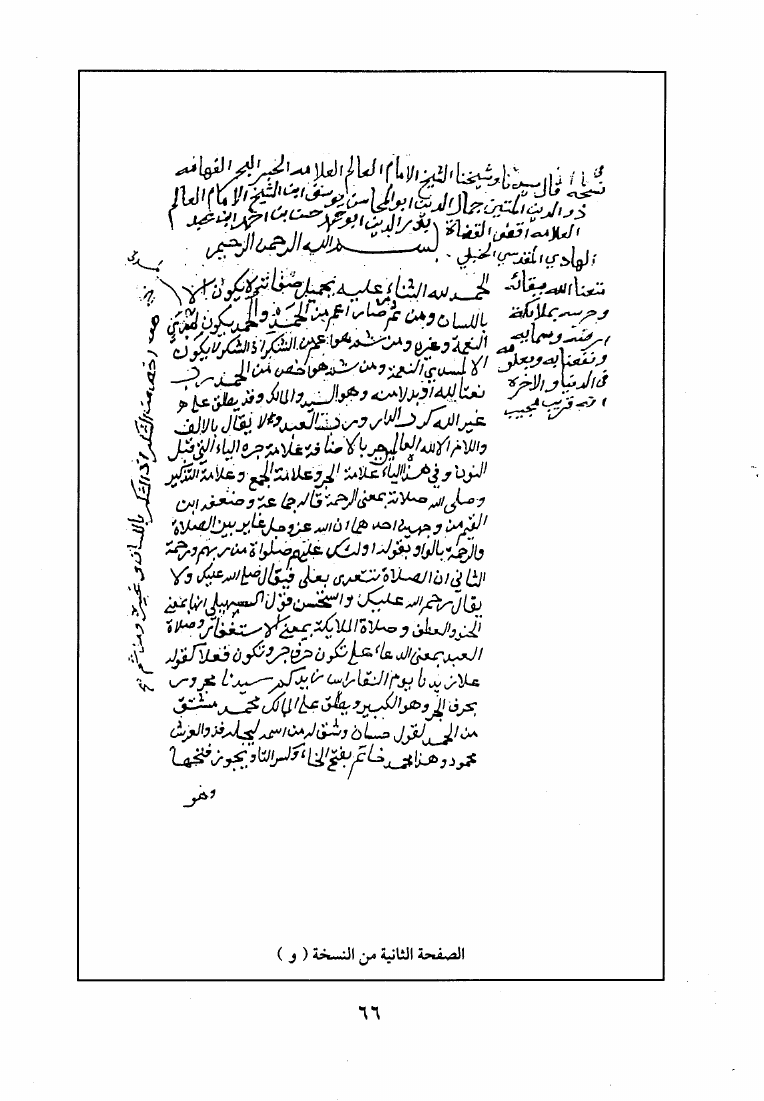 قال سيدنا وشيخنا الشيخ الامام العالم العلامه الحبر البحر الفهامه
ذو الدين المتين جمال الدين ابو المحاسن يوسف ابن الشيخ الامام العالم
العلامه اقضى القضاة بدر الدين ابو محمد حسن بن احمد ابن عبد
الهادي المقدسي الحنبلي
متعنا الله ببقائه
وحرسه بملائكة
ارضه وسمايه
ونفعنا به وبعلومه
فى الدنيا والاخرة
انه قريب مجيب
بسم الله الرحمن الرحيم
الحمد لله الثناء عليه بجميل صفاته ولا يكون الا
باللسان ومن ثم صار اعم من الحمد والحمد يكون لمسدي
النعمة وغيره ومن ثم هو اعم من الشكر اذ الشكر لا يكون
الا لمسدي النعمة ومن ثم هو اخص من الحمد رب
نعتا لله او بدلا منه وهو السيد والمالك وقد يطلق على
غير الله كرب الدار ورب العبد ولا يقال بالالف
واللام الا لله العالمين جر بالاضافة علامة جره الياء التي قبل
النون وفي هذا الياء علامة الجر وعلامة الجمع وعلامة التذكير
وصلى الله صلاته بمعنى الرحمة قاله جماعة وضعفه ابن
القيم من وجهين احدهما ان الله عز وجل غاير بين الصلاة
والرحمة بالواو بقوله اولئك عليهم صلوات من ربهم ورحمة
الثاني ان الصلاة تتعدى بعلى فيقال صلى الله عليك ولا
يقال رحم الله عليك واستحسن قول السهيلي انها بمعنى
الحنو والعطف وصلاة الملايكة بمعنى الاستغفار وصلاة
العبد بمعنى الدعاء على تكون حرف جر وتكون فعلا كقوله
علا زيدنا يوم النقا راس زيدكم سيدنا مجرور
بحرف الجر وهو الكبير ويطلق على المالك محمد مشتق
من الحمد لقول حسان وشق له من اسمه ليجله فذو العرش
محمود وهذا محمد خاتم بفتح الخاء وكسر التاء ويجوز فتحها
وهو
اخص من الشكر اذ الشكر باللسان وغيره ومن ثم
الصفحة الثانية من النسخة ( و )
٦٦